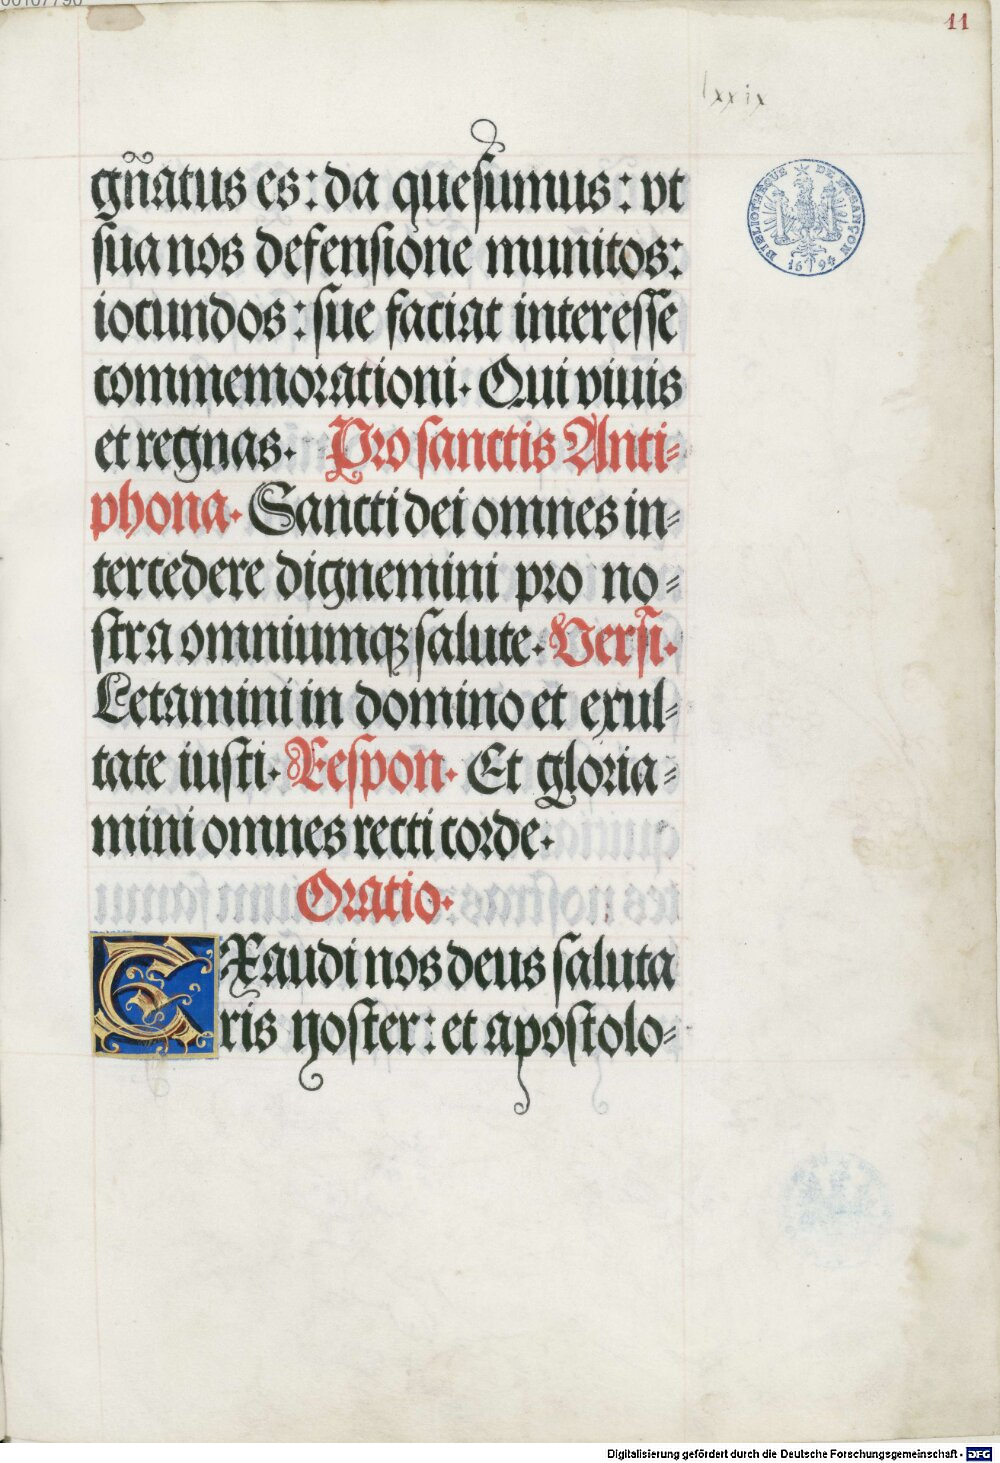 00107790
11
lxxix
BIBLIOTHECUS DE BESANÇON
1694
gñatus es: da quesumus: vt
sua nos defensione munitos:
iocundos: sue faciat interesse
commemorationi. Qui viuis
et regnas. Pro sanctis Anti-
phona. Sancti dei omnes in-
tercedere dignemini pro no-
stra omniumqꝫ salute. Versi.
Letamini in domino et exul-
tate iusti. Respon. Et gloria-
mini omnes recti corde.
Oratio.
EXaudi nos deus saluta
ris noster: et apostolo-
Digitalisierung gefördert durch die Deutsche Forschungsgemeinschaft - DFG